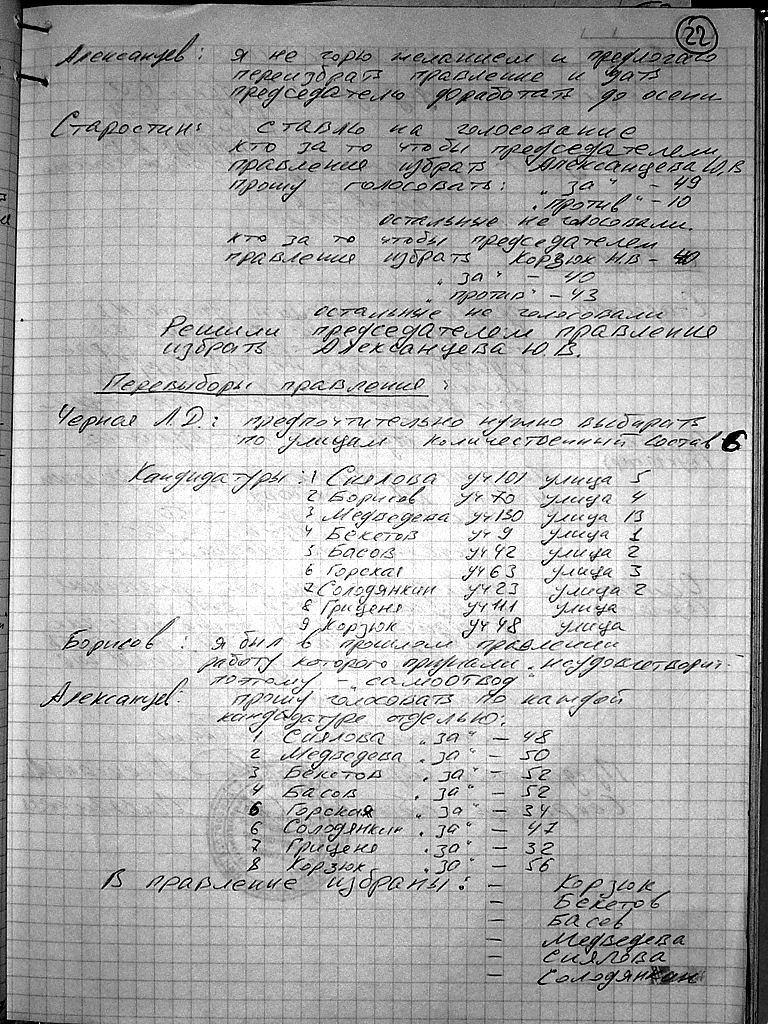 22
Александев: я не горю желанием и предлогаю
переизбрать правление и дать
председателю доработать до осени
Старостин: ставлю на голосование
кто за то чтобы председателем
правления избрать Александева Ю.В
прошу голосовать: "за" - 49
"против" - 10
остальные не голосовали.
кто за то чтобы председателем
правления избрать Корзюк Н.В -
"за" - 40
"против" - 43
остальные не голосовали
Решили председателем правления
избрать Александева Ю.В.
Перевыборы правления:
Черная Л.Д.: предпочтительно нужно выбирать
по улицам количественный состав 6
Кандидатуры: 1 Сиялова уч 101 улица 5
2 Борисов уч 70 улица 4
3 Медведева уч 130 улица 13
4 Бекетов уч 9 улица 1
5 Басов уч 42 улица 2
6 Горская уч 63 улица 3
7 Солодянкин уч 23 улица 2
8 Гриценя уч 111 улица
9 Корзюк уч 48 улица
Борисов: я был в прошлом правлении
работу которого признали "неудовлетворит-
поэтому - "самоотвод"
Александев: прошу голосовать по каждой
кандидатуре отдельно:
1 Сиялова "за" - 48
2 Медведева "за" - 50
3 Бекетов "за" - 52
4 Басов "за" - 52
6 Горская "за" - 34
6 Солодянкин "за" - 47
7 Гриценя "за" - 32
8 Корзюк "за" - 56
В правление избраны: - Корзюк
- Бекетов
- Басев
- Медведева
- Сиялова
- Солодянкин